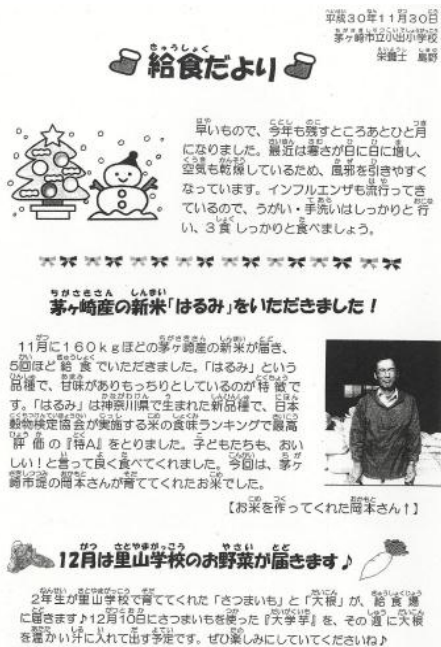 平成30年11月30日
茅ヶ崎市立小出小学校
栄養士 島野
給食だより
早いもので、今年も残すところあとひと月
になりました。最近は寒さが日に日に増し、
空気も乾燥しているため、風邪を引きやすく
なっています。インフルエンザも流行ってき
ているので、うがい・手洗いはしっかりと行
い、3食しっかりと食べましょう。
茅ヶ崎産の新米「はるみ」をいただきました！
11月に160kgほどの茅ヶ崎産の新米が届き、
5回ほど給食でいただきました。「はるみ」という
品種で、甘味がありもっちりとしているのが特徴で
す。「はるみ」は神奈川県で生まれた新品種で、日本
穀物検定協会が実施する米の食味ランキングで最高
評価の『特A』をとりました。子どもたちも、おい
しい！と言って良く食べてくれました。今回は、茅ヶ
崎市堤の岡本さんが育ててくれたお米でした。
【お米を作ってくれた岡本さん↑】
12月は里山学校のお野菜が届きます♪
2年生が里山学校で育ててくれた「さつまいも」と「大根」が、給食場
に届きます♪12月10日にさつまいもを使った『大学芋』を、その週に大根
を温かい汁に入れて出す予定です。ぜひ楽しみにしていてくださいね♪